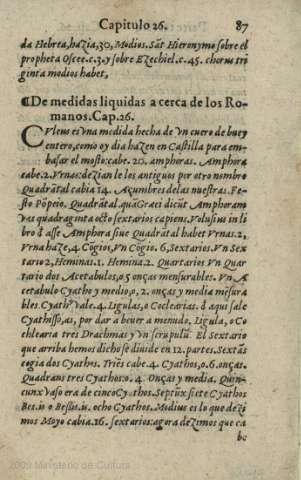 Capitulo 26. 87
da Hebrea, hazia, 30, Modios. Sãt Hieronymo sobre el
propheta Osee. c. 3. y sobre Ezechiel. c. 45. chorus tri
ginta modios habet,
¶De medidas liquidas a cerca de los Ro-
manos. Cap. 26.
CVleus es vna medida hecha de vn cuero de buey
entero, como oy dia hazen en Castilla para em-
basar el mosto: cabe. 20. amphoras. Amphora
cabe. 2. Vrnas: dezian le los antiguos por otro nombre
Quadrãtal cabia 14. Açumbres delas nuestras. Fe-
sto Põpeio. Quadrãtal. quã Græci dicũt Amphoram
vas quadraginta octo sextarios capiens. Volusius in li
bro d̃ asse Amphora siue Quadrãtal habet Vrnas 2,
Vrna haze, 4 Cõgios, Vn Cõgio. 6, Sextarios. Vn Sex
tario 2, Heminas. 1. Hemina. 2. Quartarios Vn Quar
tario dos Acetabulos, o 5 onças mensurables. Vn A
cetabulo Cyatho y medio, o, 2. onças y media mẽsura
bles. Cyath° vale. 4. Ligulas, o Coclearias. d̃ aqui sale
Cyathisso, as, por dar a beuer a menudo, Ligula, o Co
chlearia tres Drachmas y Vn scrupulũ. El Sextario
que arriba hemos dicho se diuide en 12. partes. Sextãs
cogia dos Cyathos. Triẽs cabe. 4. Cyathos, o. 6. onças.
Quadrans tres Cyathos: o. 4. Onças y media, Quin-
cunx Vaso era de cinco Cyathos. Septũx siete Cyathos
Bes. is o Bessis. is. ocho Cyathos. Modius es lo que dezi
mos Moyo cabia. 16. sextarios: agora dezimos que ca
be
2009 Ministerio de Cultura